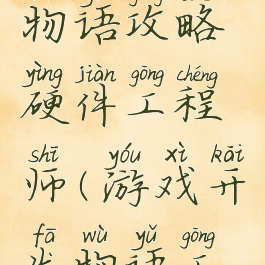 物语攻略
yìng jiàn gōng chéng
硬件工程
shī yóu xì kāi
师(游戏开
fā wù yǔ gōng
发物语工